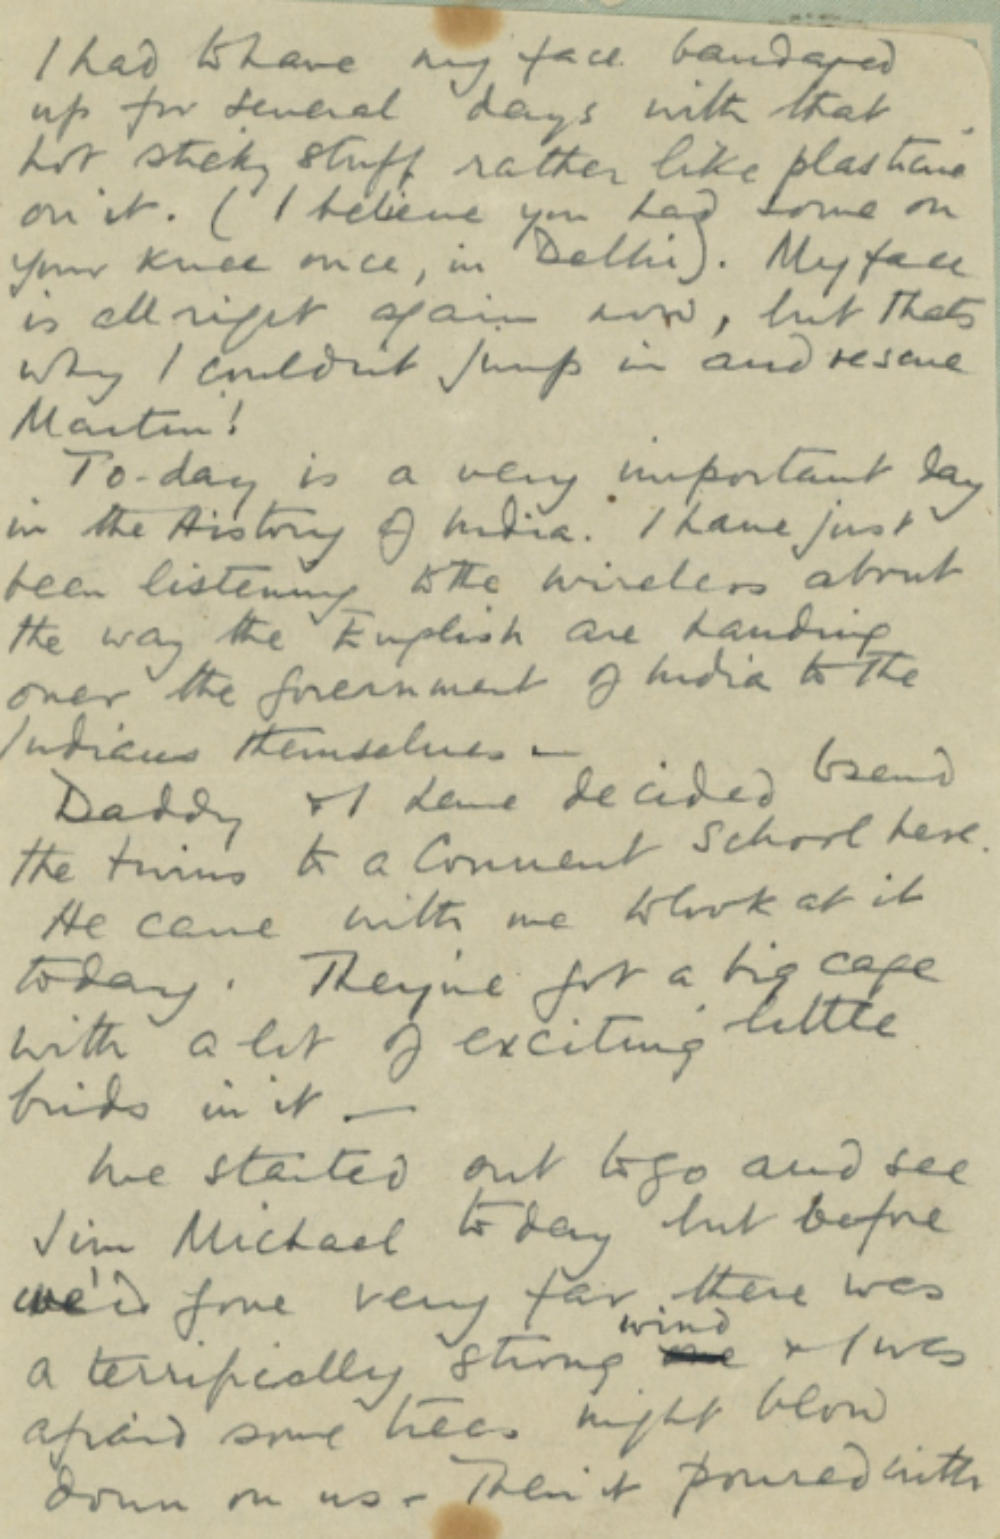 I had to have my face bandaged
up for several days with that
hot sticky stuff rather like plasticine
on it. (I believe you had some on
your knee once, in Delhi). My face
is all right again now, but thats
why I couldn't jump in and rescue
Martin!
To-day is a very important day
in the History of India. I have just
been listening to the wireless about
the way the English are handing
over the government of India to the
Indians themselves –
Daddy & I have decided to send
the twins to a Convent School here.
He came with me to look at it
today. They've got a big cage
with a lot of exciting little
birds in it –
We started out to go and see
Jim Michael today but before
we'd gone very far there was
a terrifically strong wind & I was
afraid some trees might blow
down on us – Then it poured with